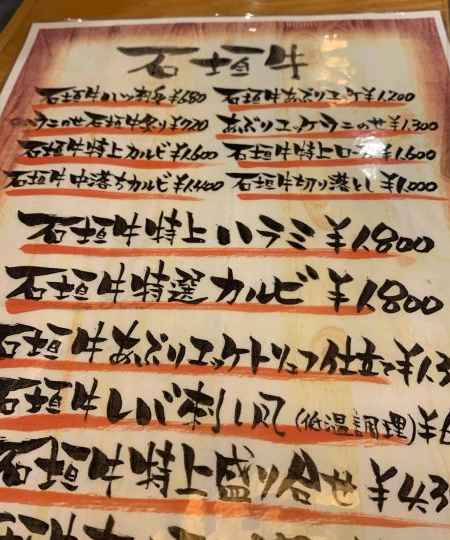 石垣牛
石垣牛ハツ刺身¥680 石垣牛あぶりユッケ¥1,200
ウニのせ石垣牛炙り¥720 あぶりユッケウニのせ¥1,300
石垣牛特上カルビ¥1,600 石垣牛特上ロース¥1,600
石垣牛中落ちカルビ¥1,400 石垣牛切り落とし¥1,000
石垣牛特上ハラミ¥1,800
石垣牛特選カルビ¥1,800
石垣牛あぶりユッケトリュフ仕立て¥1,3
石垣牛レバ刺し風(低温調理)¥
石垣牛特上盛り合せ¥4,3